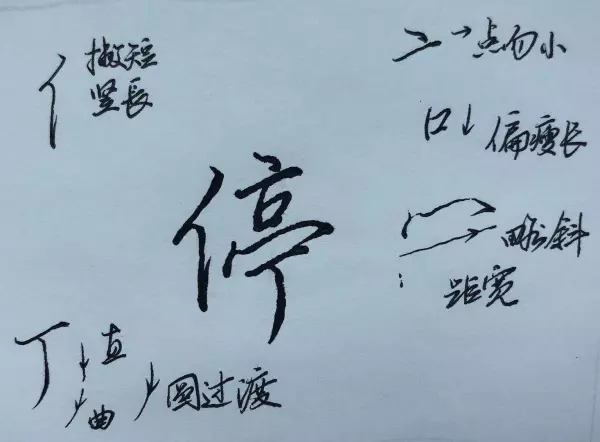 亻 撇短
竖長
亠→点勿小
口↓偏瘦长
停
略斜
距宽
丁 直
曲
圆过渡